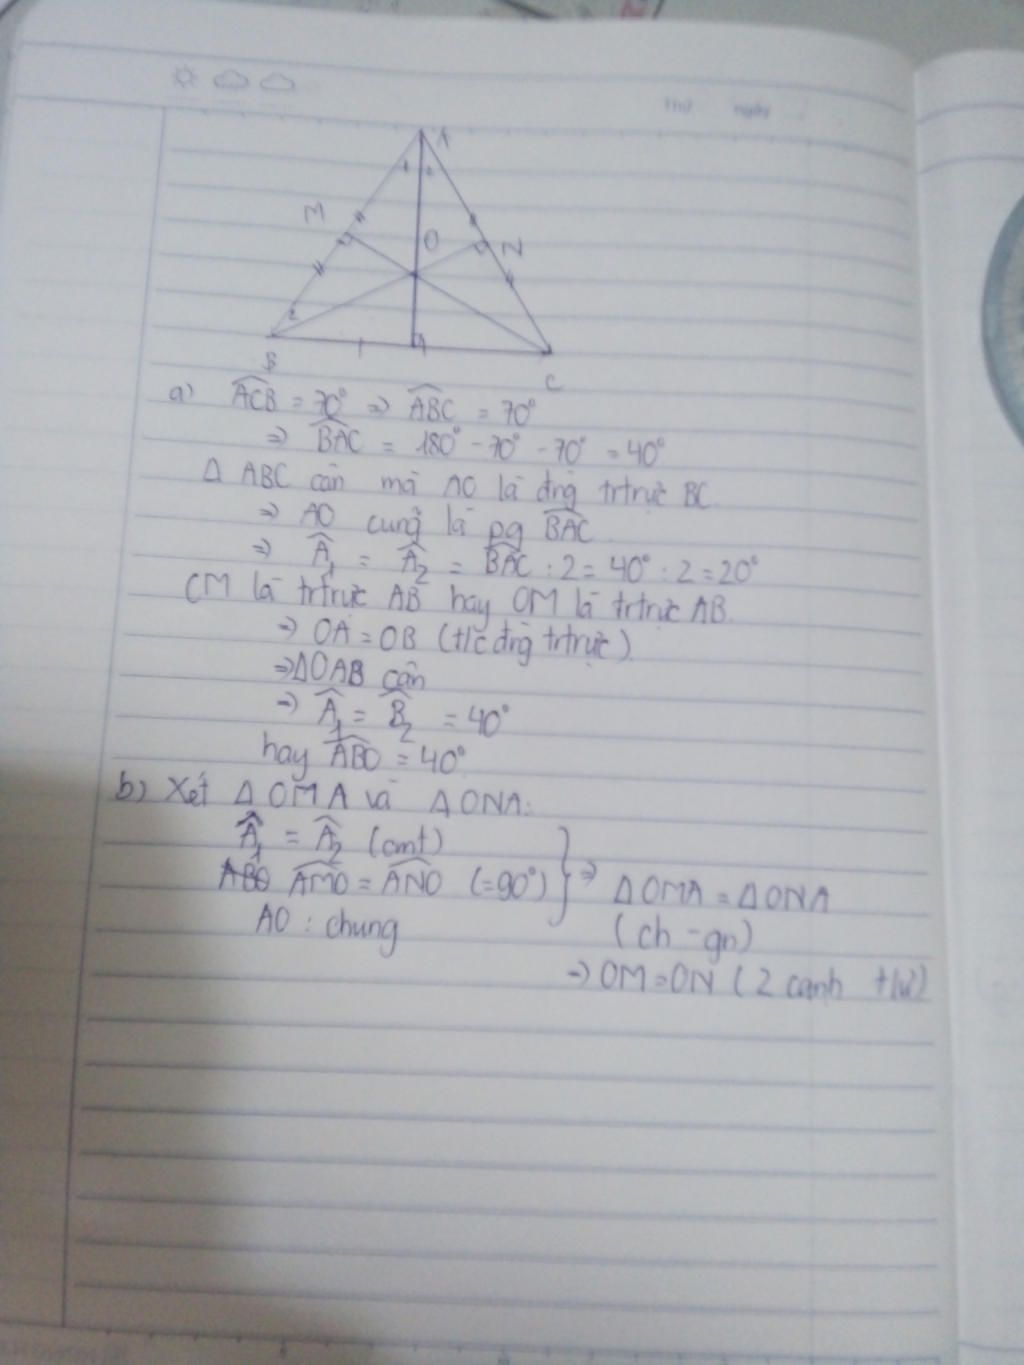 Thứ ngày
A
1 2
M
O
N
2
B
C
a) ACB = 70° => ABC = 70°
=> BAC = 180° - 70° - 70° = 40°
Δ ABC cân mà AO là đng trtrực BC.
=> AO cũng là pg BAC
=> A1 = A2 = BAC : 2 = 40° : 2 = 20°
CM là trtrực AB hay OM là trtrực AB.
=> OA = OB (t/c đng trtrực)
=> ΔOAB cân
=> A1 = B2 = 40°
hay ABO = 40°
b) Xét ΔOMA và ΔONA:
A1 = A2 (cmt)
ABO AMO = ANO (=90°) } => ΔOMA = ΔONA
AO : chung (ch - gn)
=> OM = ON (2 cạnh t/ứ)